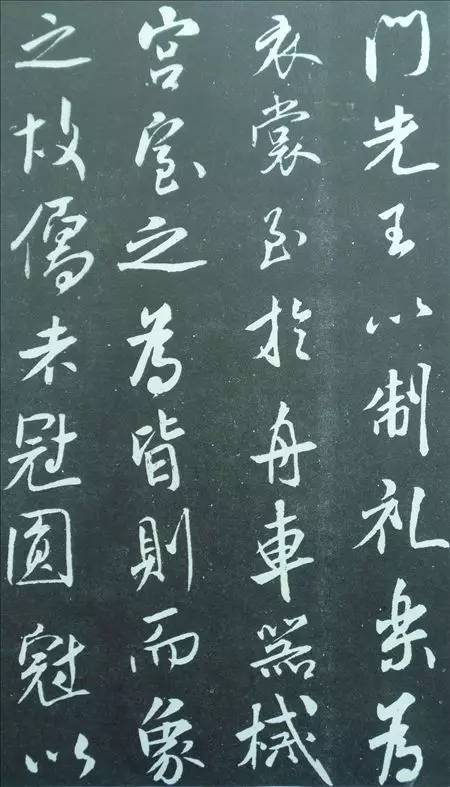 門先王以制礼樂為
衣裳至於舟車器械
宮室之為皆則而象
之故儒者冠圓冠以